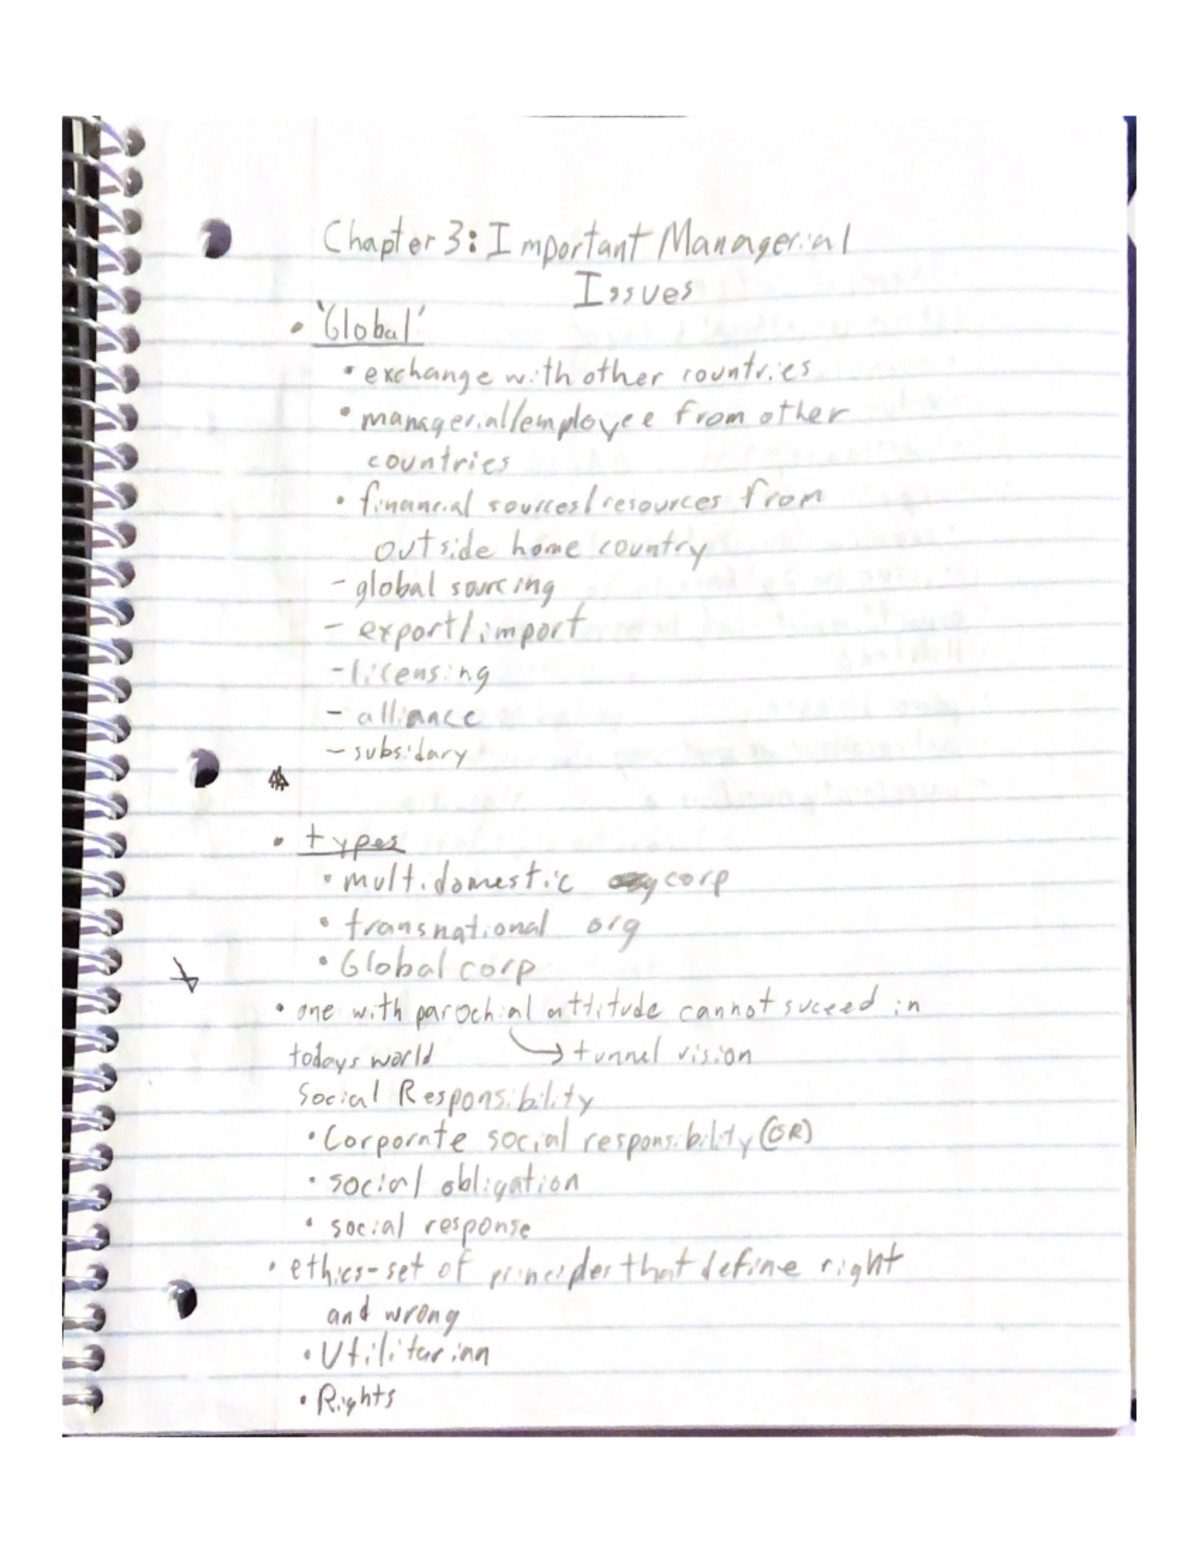 Chapter 3: Important Managerial
Issues
• 'Global'
• exchange with other countries
• managerial/employee from other
countries
• financial sources/resources from
outside home country
- global sourcing
- export/import
- licensing
- alliance
- subsidary
• types
• multidomestic corp
• transnational org
• Global corp
• one with parochial attitude cannot suceed in
todays world → tunnel vision
Social Responsibility
• Corporate social responsibility (CSR)
• social obligation
• social response
• ethics - set of principles that define right
and wrong
• Utilitarian
• Rights